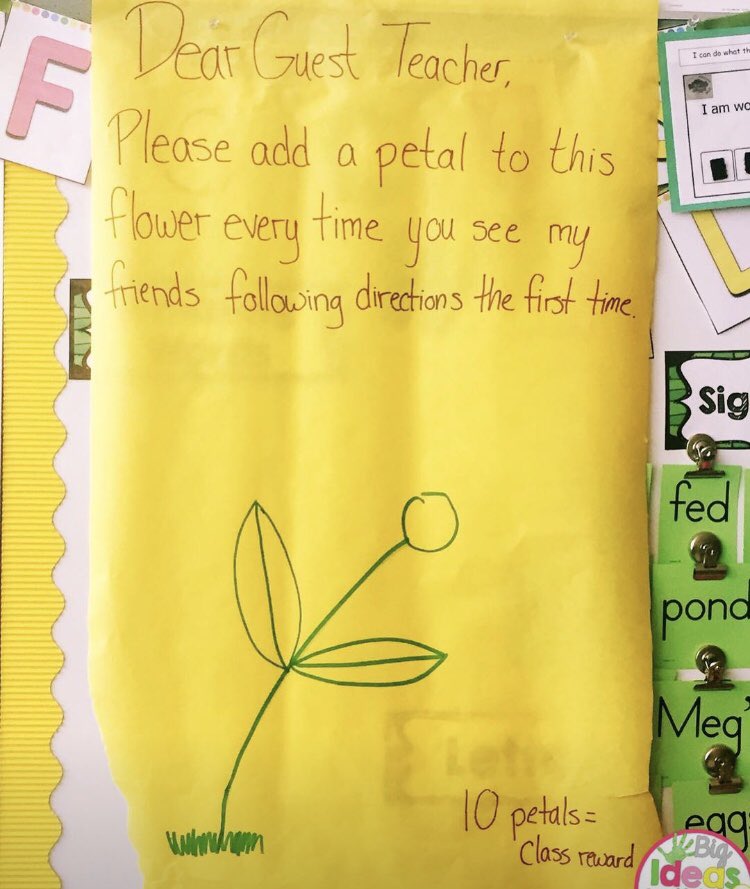 Dear Guest Teacher,
Please add a petal to this
flower every time you see my
friends following directions the first time.
10 petals =
Class reward
F
I can do what th
I am wo
Sig
fed
pond
Meg'
egg
Big
Ideas